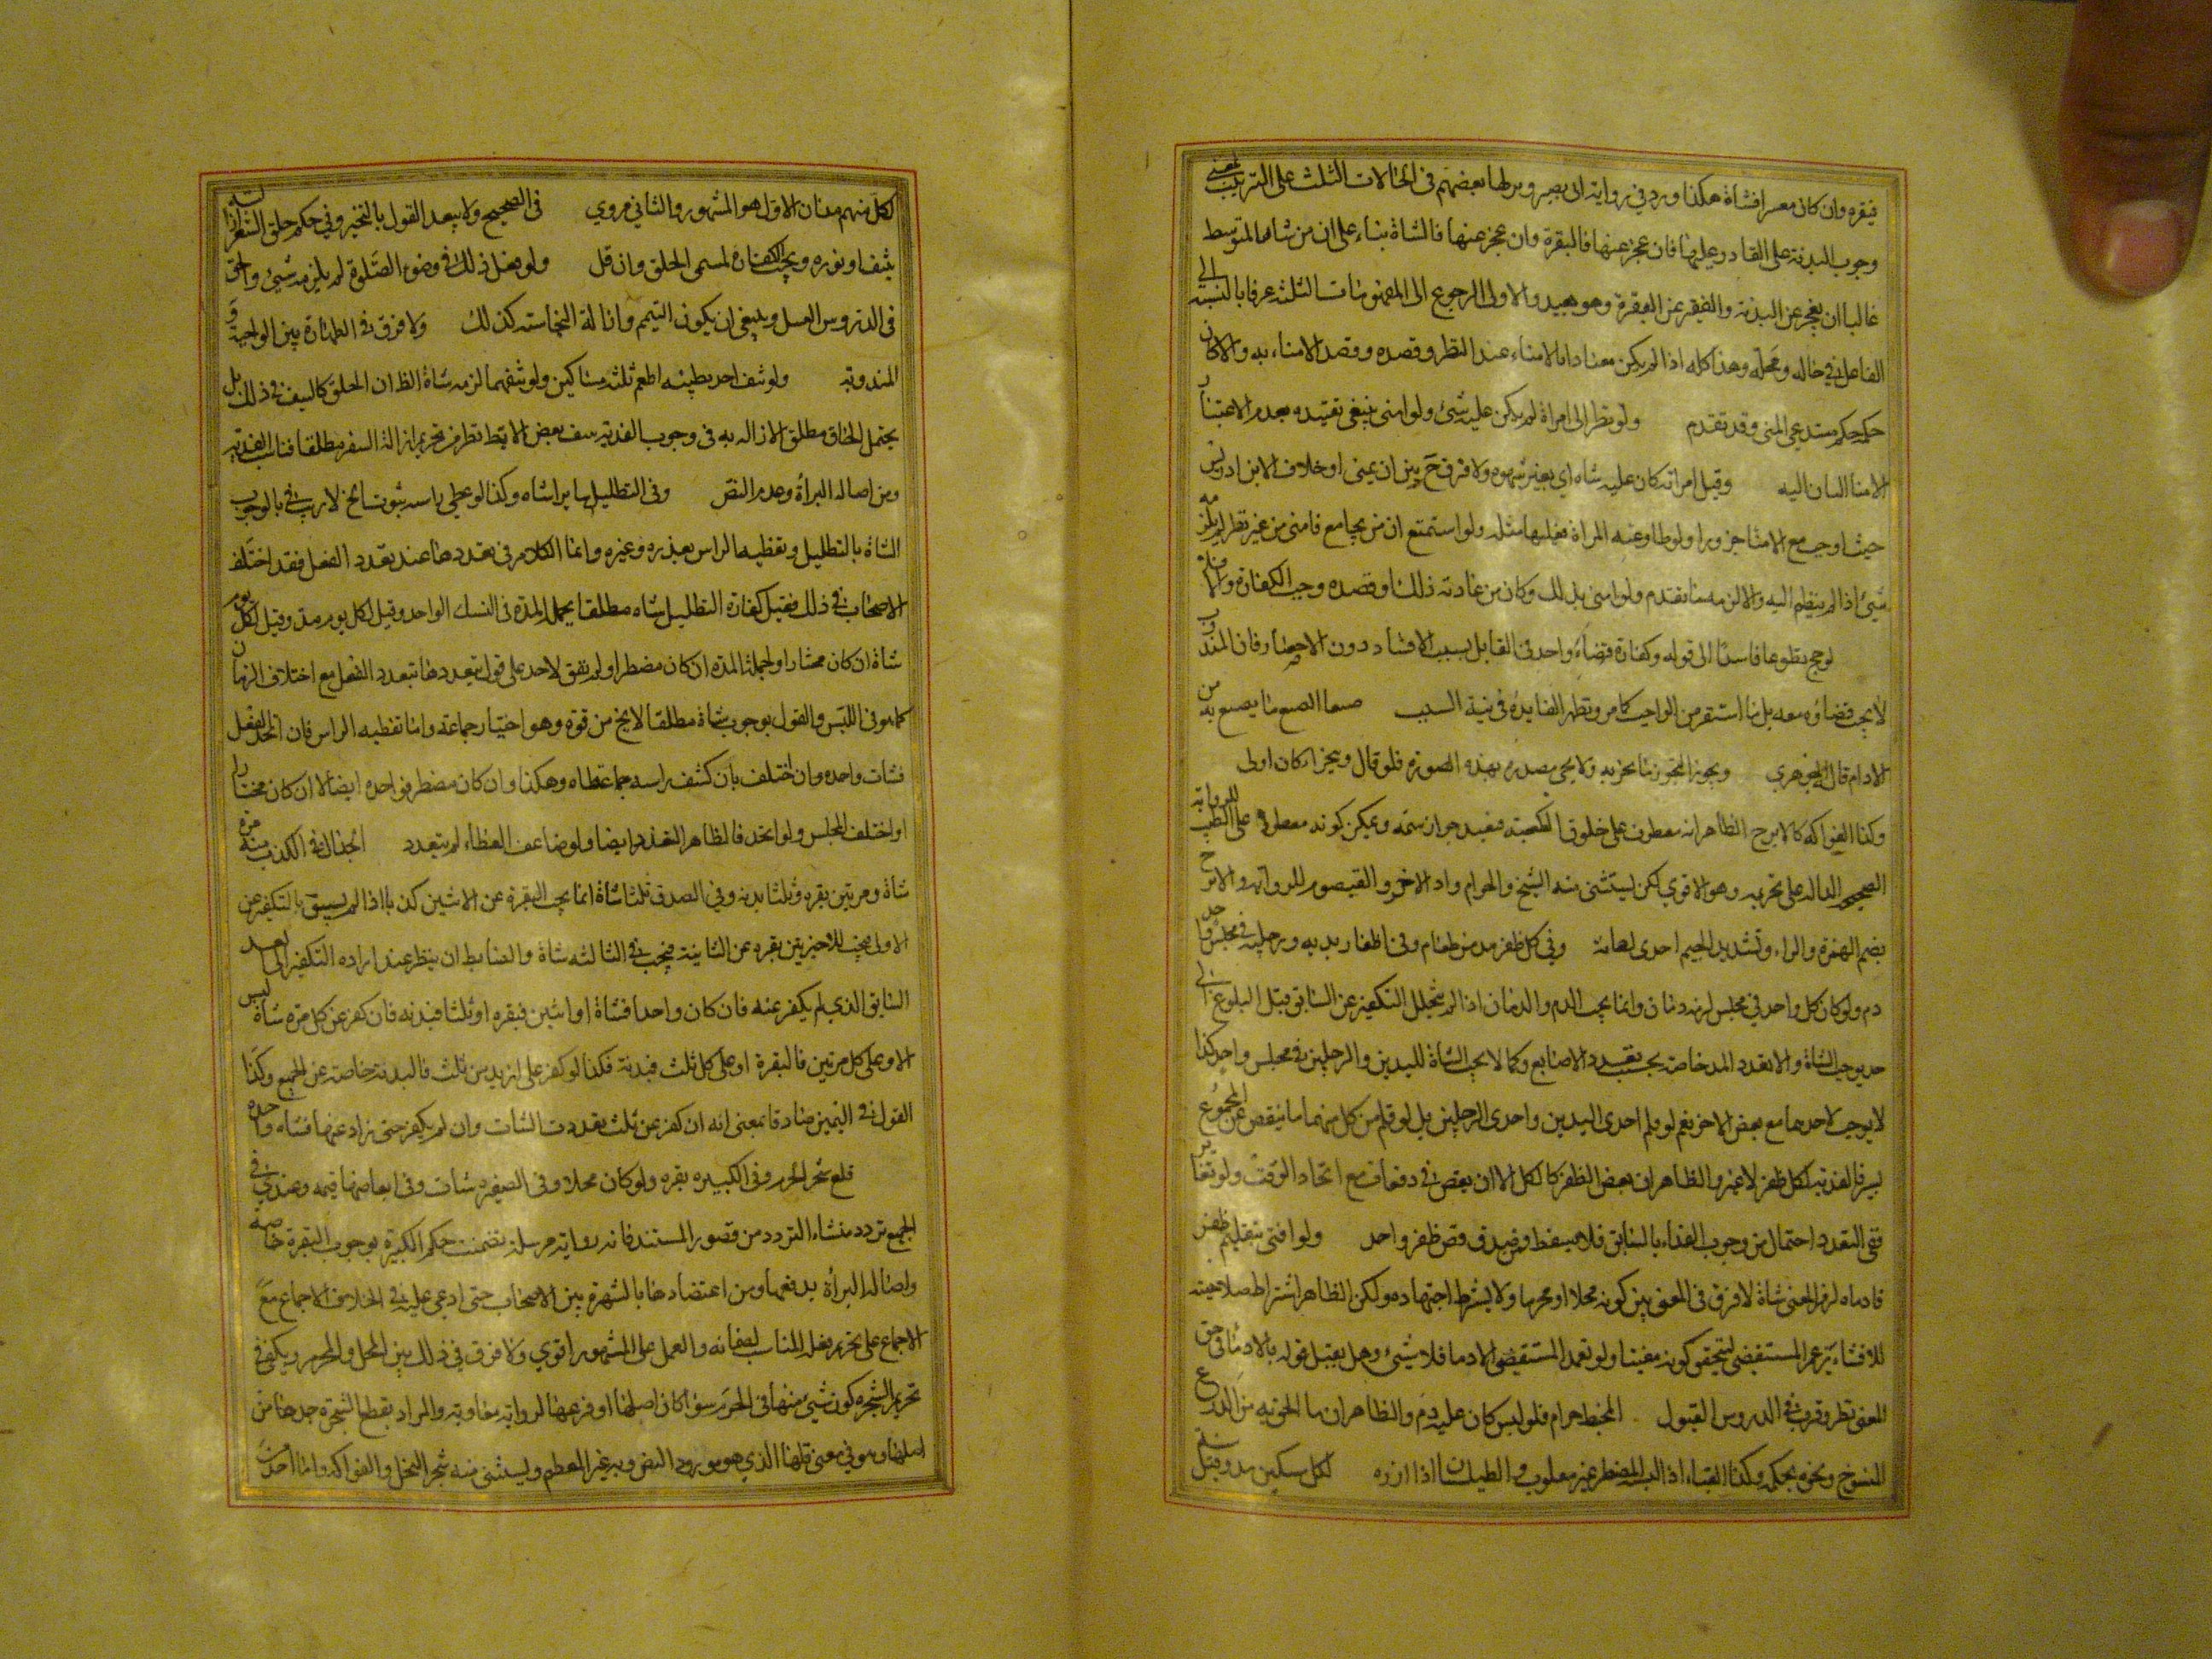 فبقره وان كان معسرا فشاة هكذا ورد في رواية ابي بصير ونزلها بعضهم في الحالات الثلث على الترتيب بمعنى
وجوب البدنة على القادر عليها فان عجز عنها فالبقرة وان عجز عنها فالشاة بناء على ان من شان المتوسط
غالبا ان يعجز عن البدنة والفقير عن البقرة وهو بعيد والاولى الرجوع الى المفهومات الثلثه عرفا بالنسبه الى
الفاعل في حاله ومحله وهذا كله اذا لم يكن معتادا بالامناء عند النظر وقصده وقصد الامناء به والا كان
حكمه حكم مستدعي المني وقد تقدم ولو نظر الى امراة لم يكن عليه شئ ولو امنى ينبغي تقييده بعدم الاعتبار
وقبل امراته كان عليه شاه اي بغير شهوه ولا فرق ح بين ان يمني او خلاف لابن ادريس
حيث اوجب مع الامنا جزورا ولو طاوعته المراة فعليها مثله ولو استمتع ان من يجامع فامنى من غير نظر لم يلزمه
شئ اذا لم ينظر اليه والا لزمه ما تقدم ولو امنى بذلك وكان من عادته ذلك او قصده وجب الكفارة
لو حج تطوعا فاسدا الى قوله وكفارة قضاءه واحد في القابل بسبب الافساد دون الاحصار فان المندوب
لا يجب قضاؤه معه بل ما استقر من الواجب كما مر وتظهر الفايدة في نية السبب
الادام قاله الجوهري
وكذا الفواكه كالاترج الظاهر انه معطوف على خلوق الكعبه فيفيد جواز شمه ويمكن كونه معطوفا على الطيب للرواية
الصحيحه الداله على تحريمه وهو الاقوى لكن يستثنى منه الشيح والخزام والاذخر والقيصوم للرواية والاترج
بضم الهمزة والراء وتشديد الجيم احدى لغاته وفي كل ظفر مد من طعام وفي اظفار يديه ورجليه في مجلس واحد
دم ولو كان كل واحد في مجلس لزمه دمان وانما يجب الدم والدمان اذا لم يتخلل التكفير عن السابق قبل البلوغ الى
حد يوجب الشاة والا تعدد المد خاصة بحسب تعدد الاصابع وكما لا يجب الشاة لليدين والرجلين في مجلس واحد كذا
لا يوجب لاحدها مع بعض الاخر نعم لو قلم احدى اليدين واحدى الرجلين بل لو قلم من كل منهما ما ينقص عن المجموع
والظاهر ان بعض الظفر كالكل الا ان يقص في دفعات مع اتحاد الوقت ولو تغاير
ففي التعدد احتمال من وجوب الفداء بالسابق فلا يسقط وصدق قص ظفر واحد ولو افتى بتقليم ظفر
فادماه لزم المفتي شاة لا فرق في المفتي بين كونه محلا او محرما ولا يشترط اجتهاده ولكن الظاهر اشتراط صلاحيته
للافتاء بزعم المستفتي ليتحقق كونه مفتيا ولو تعمد المستفتي الادما فلا شئ وهل يقبل قوله بالادماء في حق
المفتي نظر وقرب في الدروس القبول المخيط حرام فلو لبس كان عليه دم والظاهر ان ما الحق به من الدرع
المنسوج ونحوه بحكمه وكذا القباء اذا لبسه المضطر غير مقلوب والطيلسان اذا ازره لكل مسكين مد وقيل
لكل منهم مدان الاول هو المشهور والثاني مروي في الصحيح ولا يبعد القول بالتخيير وفي حكم حلق الشعر ازالته
بنتف او نوره ويجب الكفارة لمسمى الحلق وان قل ولو فعل ذلك في وضوء الصلوة لم يلزمه شئ والحق
في الدروس الغسل وينبغي ان يكون التيمم وازالة النجاسة كذلك ولا فرق في الطهارة بين الواجبة و
المندوبه ولو نتف احد ابطيه اطعم ثلثه مساكين ولو نتفهما لزمه شاة الظ ان الحلق كالنتف في ذلك بل
يحتمل الحاق مطلق الازاله به في وجوب الفدية بنتف بعض الابط نظر من تحريم ازالة الشعر مطلقا
ومن اصالة البراءة وعدم النص وفي التظليل سايرا شاه وكذا لو غطى راسه بثوب الخ لا ريب في الوجوب
الشاة بالتظليل وتغطيه الراس بعذره وغيره وانما الكلام في تعددها عند تعدد الفعل فقد اختلف
الاصحاب في ذلك فقيل كفارة التظليل شاه مطلقا لجملة المدة في النسك الواحد وقيل لكل يوم مد وقيل لكل يوم
شاة ان كان مختارا ولجملة المدة ان كان مضطرا ولم نقف لاحد على قول بتعددها بتعدد الفعل مع اختلاف الزمان
كما هو في اللبس والقول بوجوب شاة مطلقا لا يخ من قوة وهو اختيار جماعة واما تغطيه الراس فان اتحد الفعل
فشاة واحده وان اختلف بان كشف راسه ثم غطاه وهكذا وان كان مضطرا فواحده ايضا الا ان كان مختارا
او اختلف المجلس ولو اتحد فالظاهر التعدد ايضا ولو ضاعف الغطاء لم يتعدد الجدال في الكذب منه مرة
شاة ومرتين بقره وثلثا بدنه وفي الصدق ثلثا شاة انما يجب البقرة عن الاثنين كذبا اذا لم يسبق بالتكفير عن
الاولى والضابط ان ينظر عند اراده التكفير الى العدد
السابق الذي لم يكفر عنه فان كان واحدا فشاة او اثنين فبقره او ثلثا فبدنه فان كفر عن كل مرة شاة ليس
الا وعلى كل مرتين فالبقرة او على كل ثلث فبدنة فكذا لو كفر على ازيد من ثلث فالبدنة خاصة عن الجميع وكذا
القول في اليمين صادقا بمعنى انه ان كفر عن ثلث تعددت الشات وان لم يكفر حتى زاد عنها فشاه واحدة
قلع شجر الحرم وفي الكبيره بقره ولو كان محلا وفي الصغيره شاة وفي ابعاضها قيمه وعندي في
الجميع تردد منشاء التردد من قصور المستند فانه رواية مرسلة تضمنت حكم الكبيرة بوجوب البقرة خاصه
ولاصالة البراءة يدفعها ومن اعتضادها بالشهرة بين الاصحاب حتى ادعى عليه في الخلاف الاجماع مع
الاجماع على تحريم فعله المناسب لضمانه والعمل على المشهور اقوى ولا فرق في ذلك بين المحل والمحرم ويكفي في
تحريم الشجره كون شئ منها في الحرم سواء كان اصلها او فرعها لرواية معاوية والمراد بقطع الشجرة جدها من
اصلها وهو في معنى قلعها الذي هو مورد النص ويستثنى منه شجر النخل والفواكه